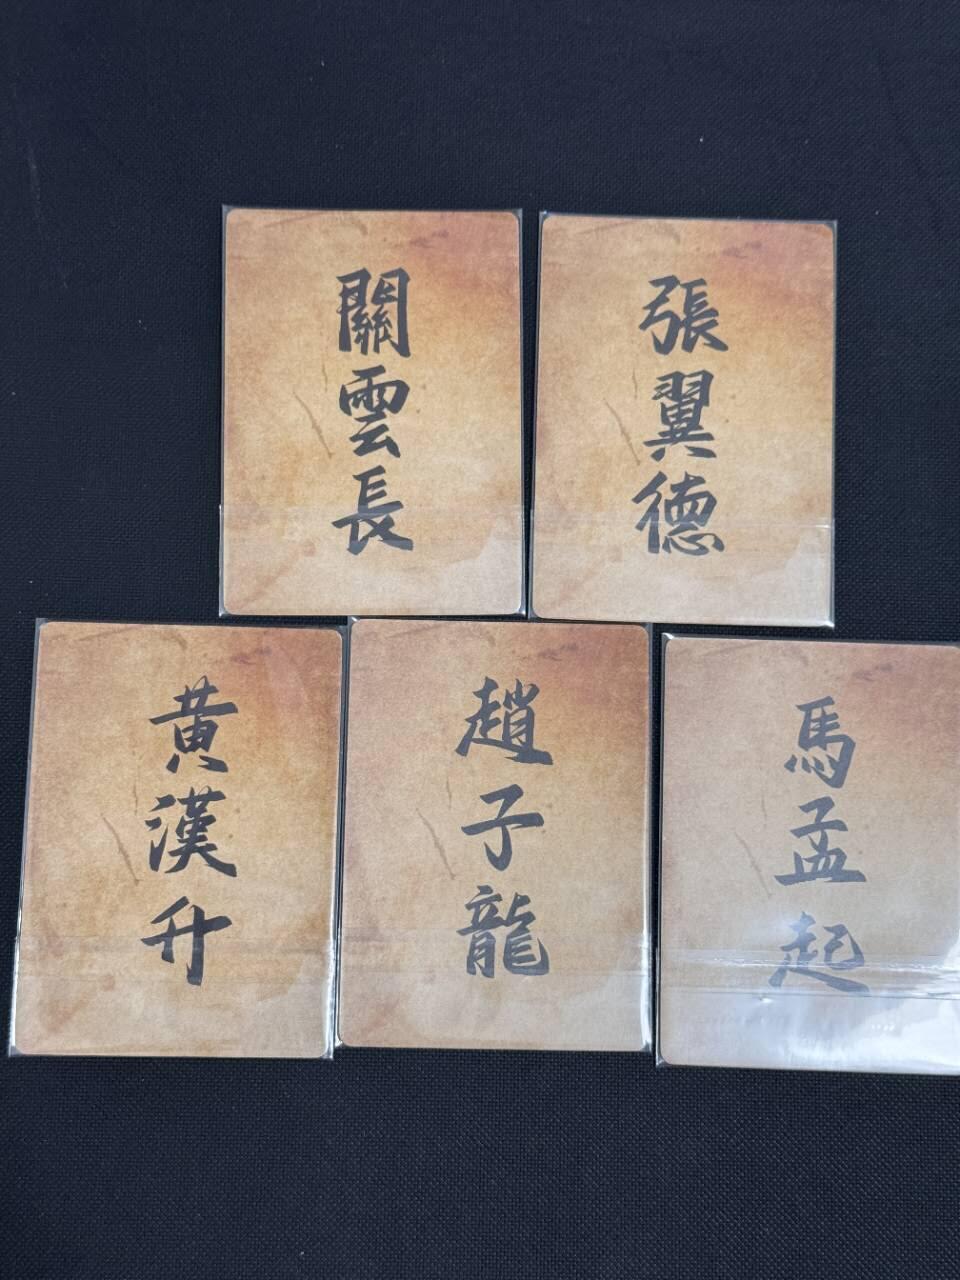 關雲長
張翼德
黄漢升
趙子龍
馬孟起